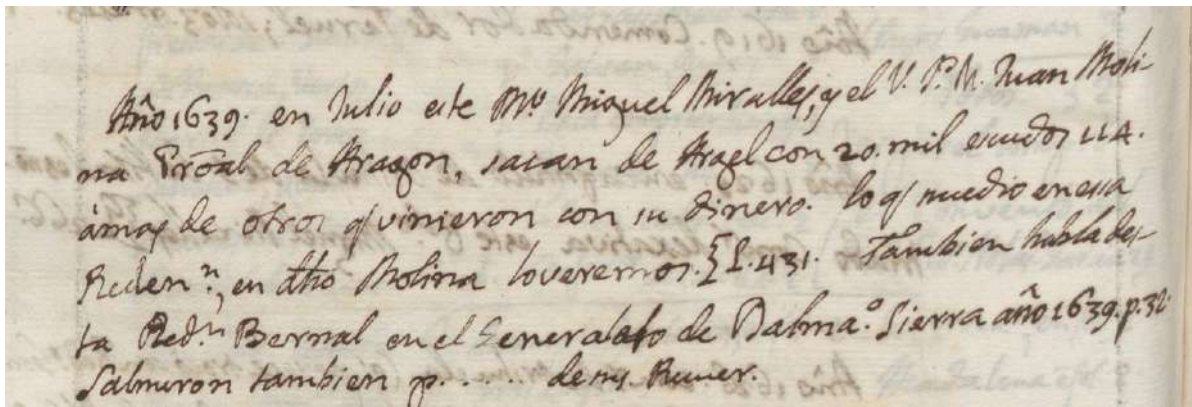 Año 1639. en Julio este Mº Miguel Miralles, y el V. P. M. Juan Moli-
na Proãl de Aragon, sacan de Argel con 20. mil escudos 114.
âmas de otros q vinieron con su dinero. lo q sucedio en essa
Reden.n, en dho Molina loveremos. P. 431. Tambien habla des-
ta Red.n Bernal en el Generalato de Dalma.º Sierra año 1639. p. 32.
Salmeron tambien p. . . . . de sus Recuer.